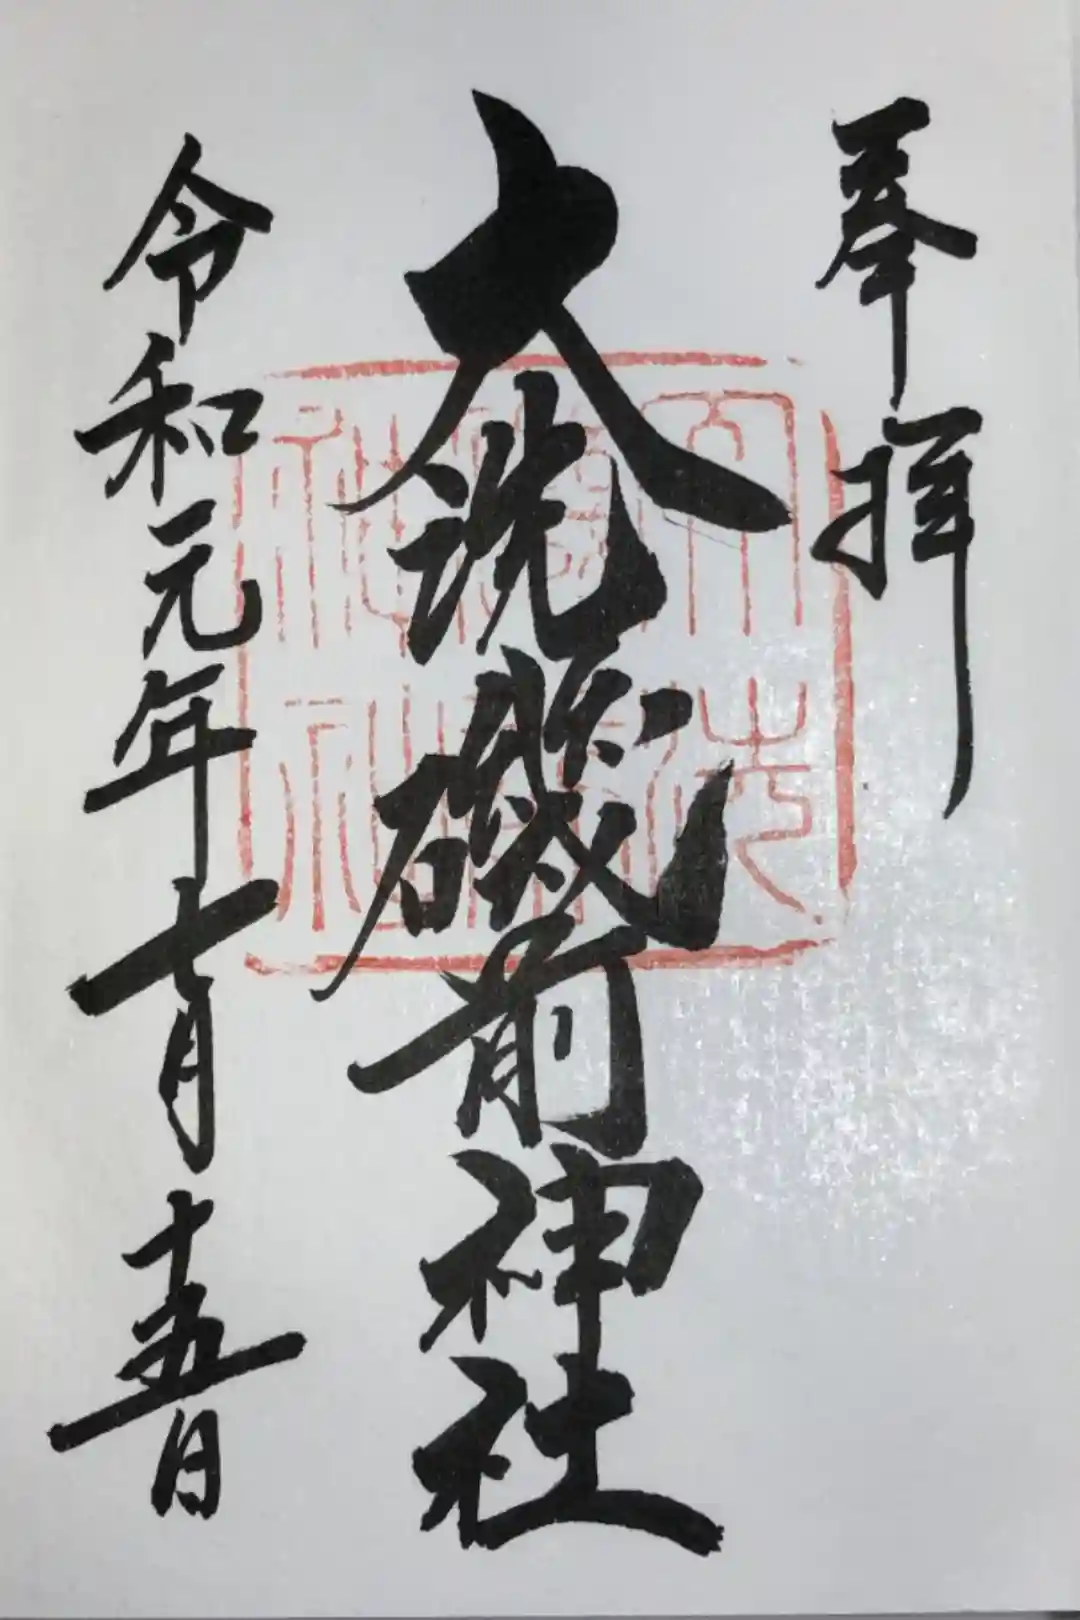 奉拝
大洗磯前神社
令和元年七月十五日
大洗
磯前
神社